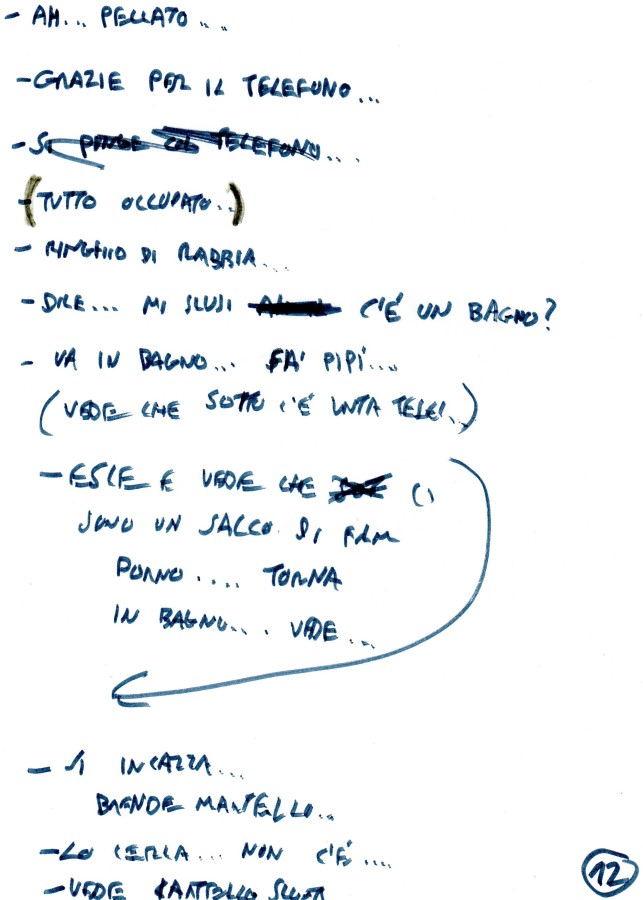 - AH... PELLATO...
- GRAZIE PER IL TELEFONO...
- SI PENDE COL TELEFONO...
- (TUTTO OCCUPATO..)
- RINGHIO DI RABBIA...
- DICE... MI SCUSI C'È UN BAGNO?
- VA IN BAGNO... FA' PIPÌ....
(VEDE CHE SOTTO C'È TELEC..)
- ESCE E VEDE CHE CI
SONO UN SACCO DI FILM
PORNO .... TORNA
IN BAGNO... VEDE...
- SI INCAZZA...
MARTELLO..
- LO CERCA... NON C'È ....
- VEDE CARTELLO
12